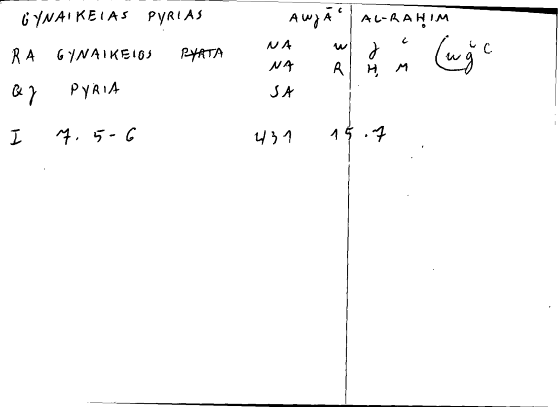 GYNAIKEIAS PYRIAS AWJĀʿ AL-RAḤIM
RA GYNAIKEIOS PYRIA NA W J ʿ (WǦʿ
NA R Ḥ M
QJ PYRIA SA
I 7. 5-6 431 15.7